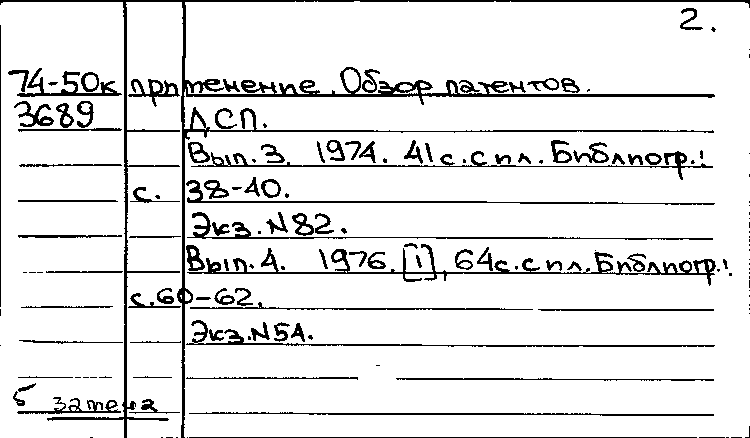 2.
74-50к применение. Обзор патентов.
3689 ДСП.
Вып. 3. 1974. 41 с. с ил. Библиогр.:
с. 38-40.
Экз. N 82.
Вып. 4. 1976. [1], 64 с. с ил. Библиогр.:
с. 60-62.
Экз. N 54.
5 замена